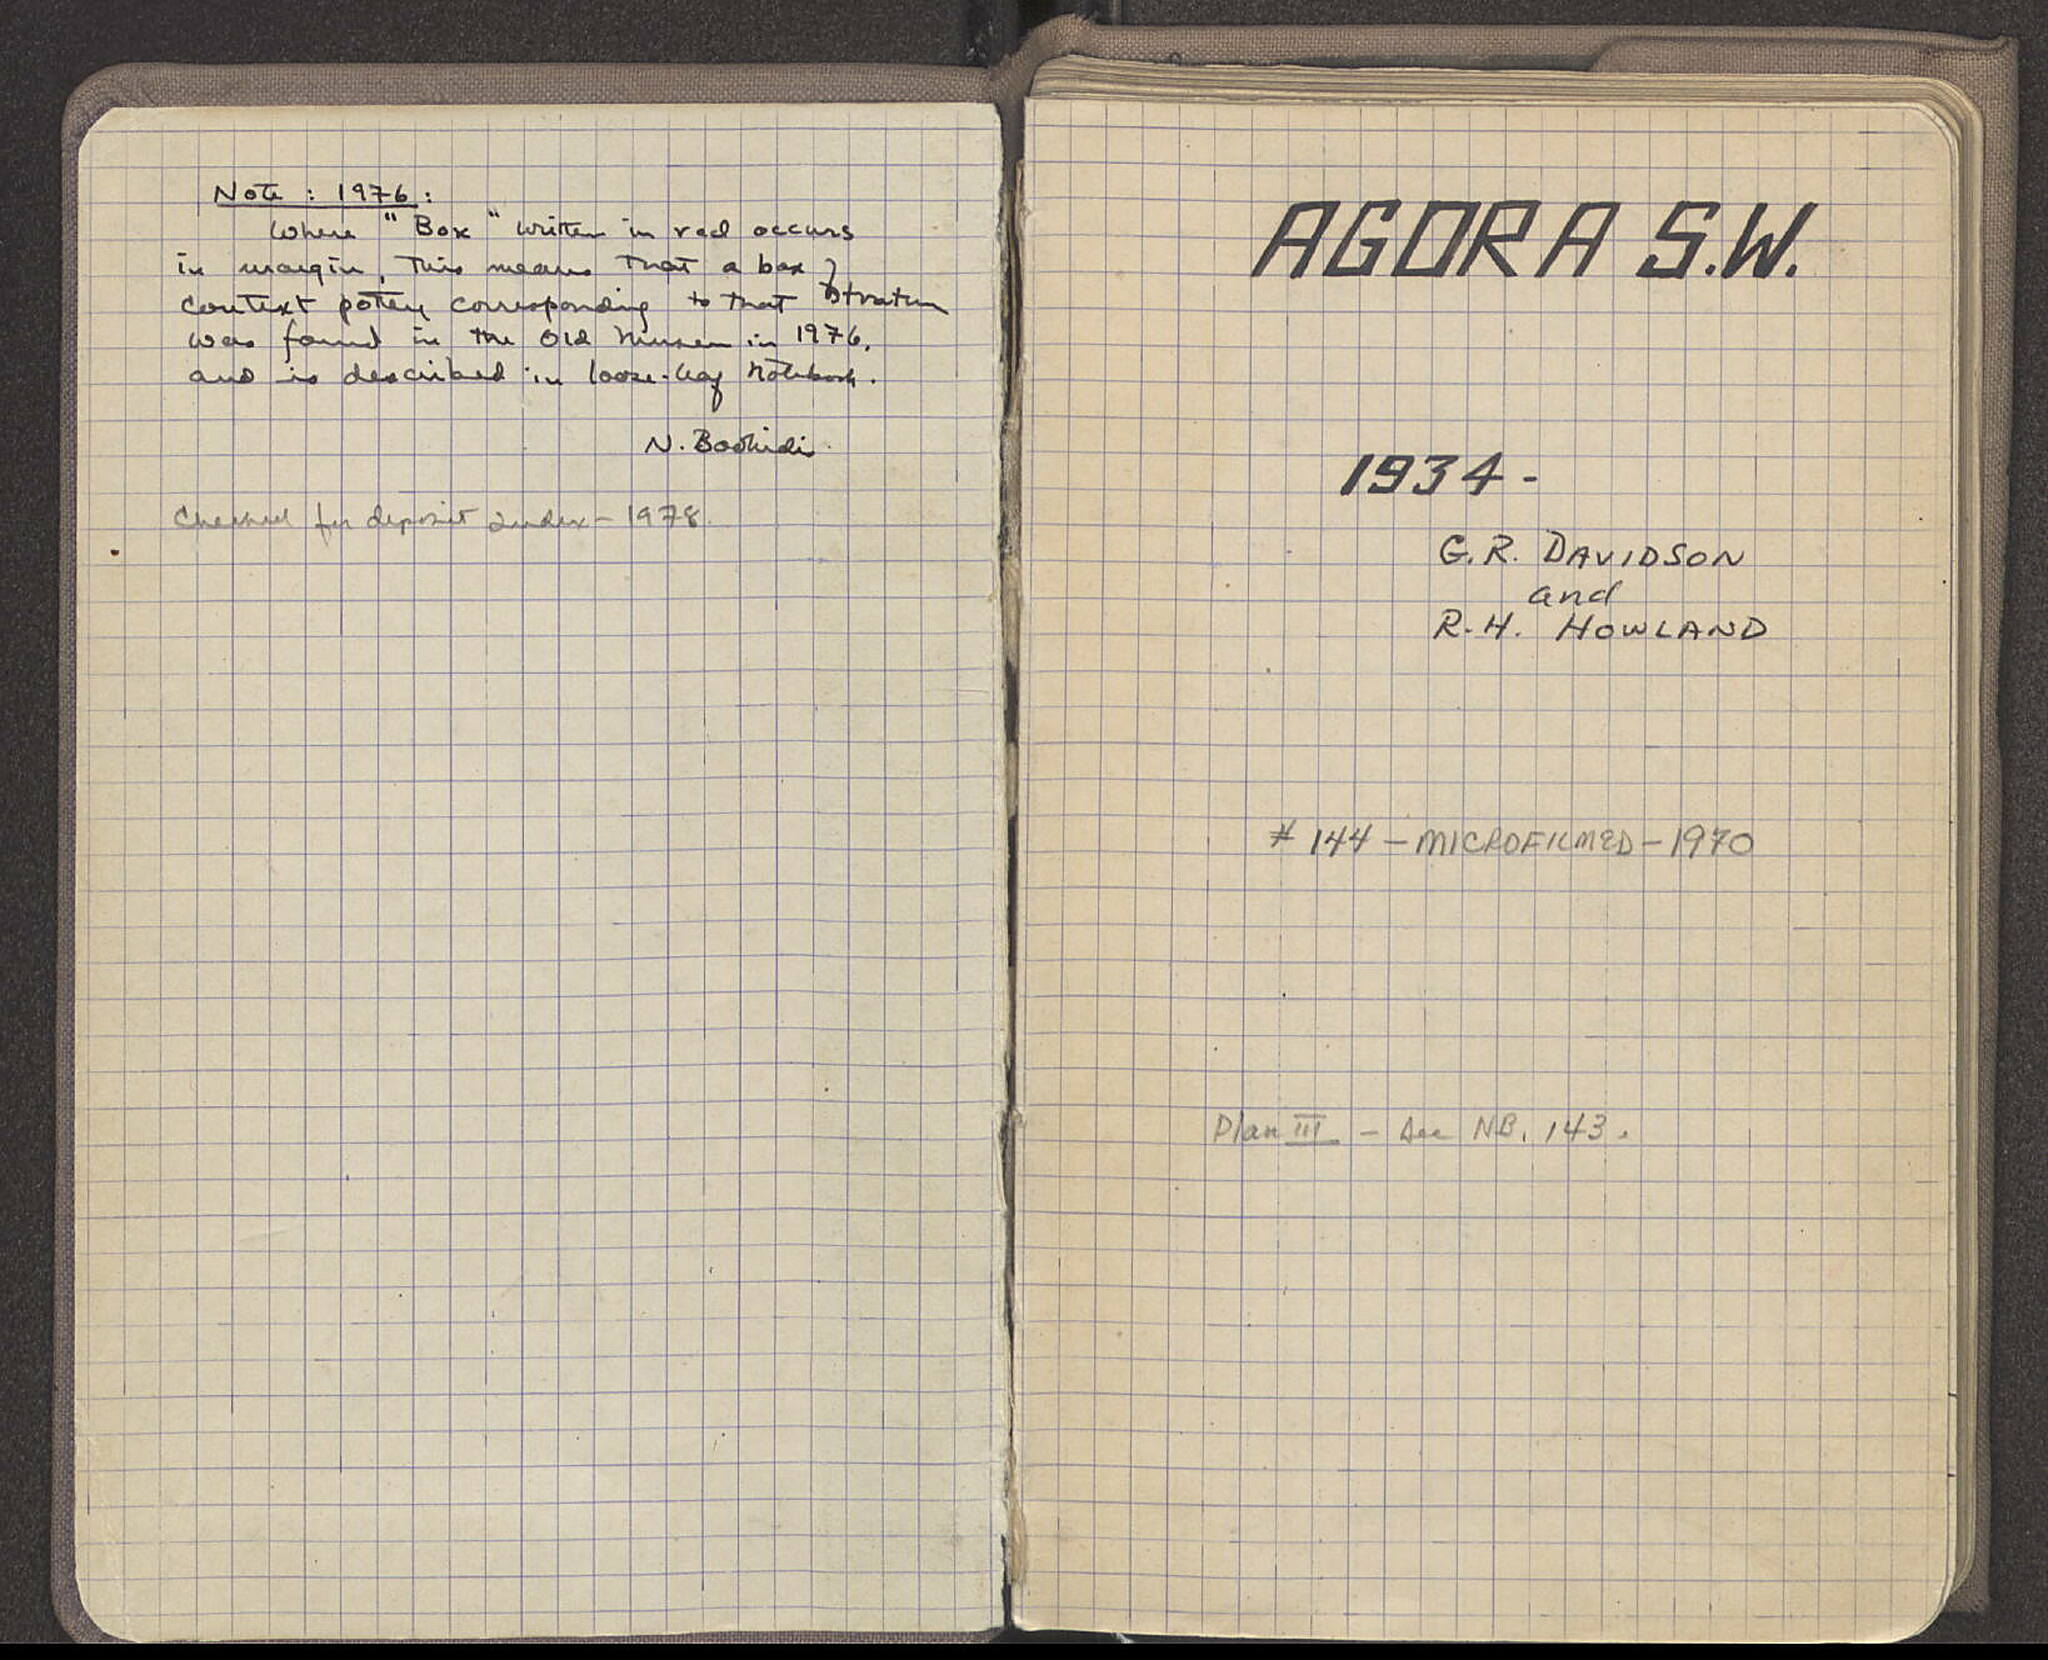 Note : 1976 :
Where "Box" written in red occurs
in margin, this means that a box of
context pottery corresponding to that stratum
was found in the Old Museum in 1976,
and is described in loose-leaf notebook.
N. Bookidis
Checked for deposit index - 1978.
AGORA S.W.
1934 -
G. R. DAVIDSON
and
R. H. HOWLAND
# 144 - MICROFILMED - 1970
Plan III - see NB. 143.